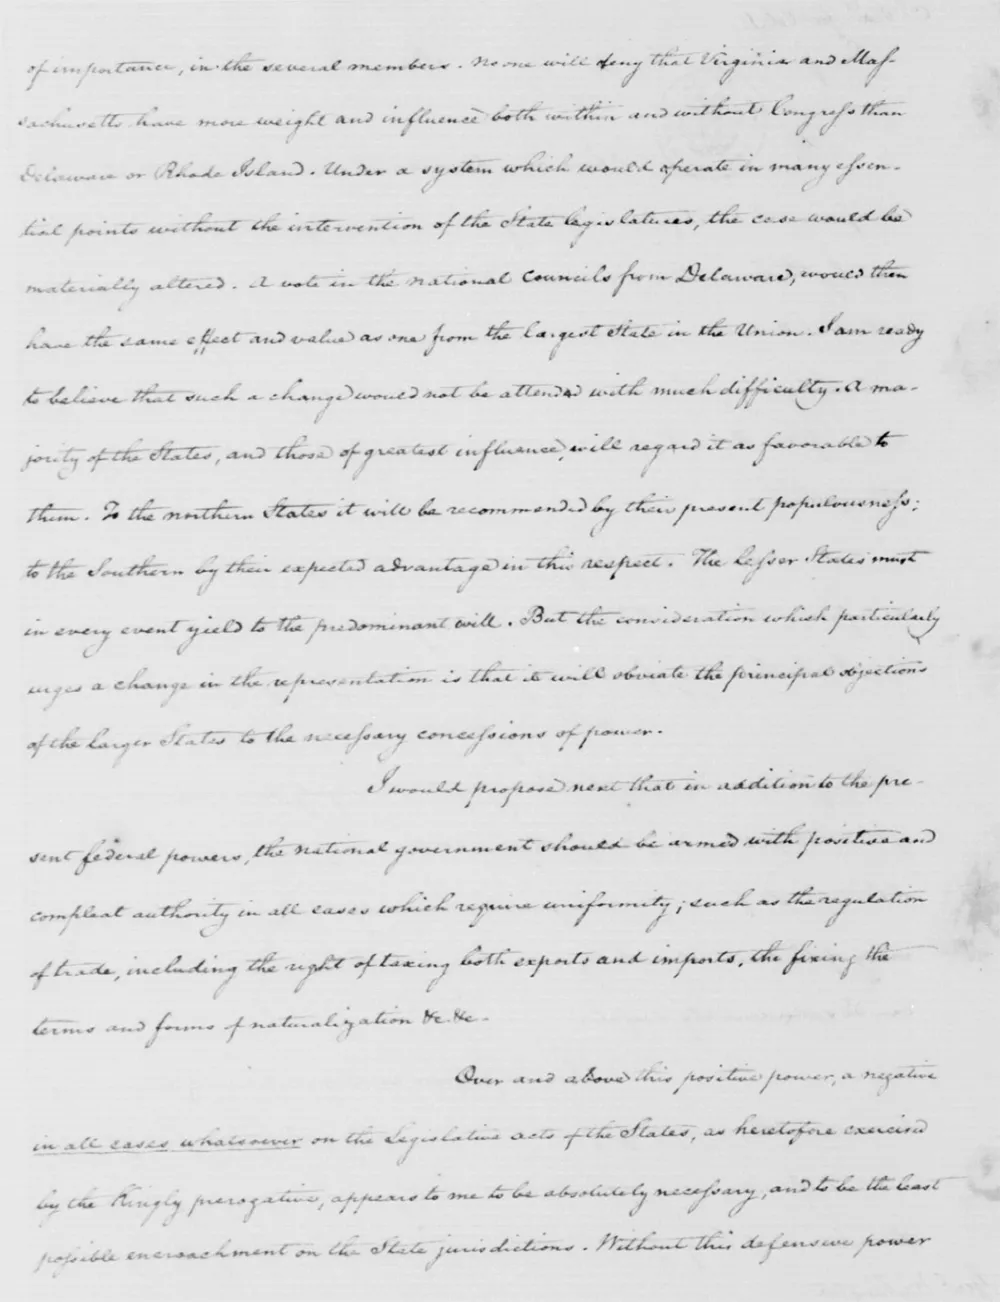 of importance, in the several members. No one will deny that Virginia and Mas-
sachusetts have more weight and influence both within and without Congress than
Delaware or Rhode Island. Under a system which would operate in many essen-
tial points without the intervention of the State legislatures, the case would be
materially altered. A vote in the national Councils from Delaware, would then
have the same effect and value as one from the largest State in the Union. I am ready
to believe that such a change would not be attended with much difficulty. A ma-
jority of the States, and those of greatest influence, will regard it as favorable to
them. To the northern States it will be recommended by their present populousness;
to the Southern by their expected advantage in this respect. The lesser States must
in every event yield to the predominant will. But the consideration which particularly
urges a change in the representation is that it will obviate the principal objections
of the larger States to the necessary concessions of power.
I would propose next that in addition to the pre-
sent federal powers, the national Government should be armed with positive and
compleat authority in all cases which require uniformity; such as the regulation
of trade, including the right of taxing both exports and imports, the fixing the
terms and forms of naturalization &c. &c.
Over and above this positive power, a negative
in all cases whatsoever on the Legislative acts of the States, as heretofore exercised
by the Kingly prerogative, appears to me to be absolutely necessary, and to be the least
possible encroachment on the State jurisdictions. Without this defensive power